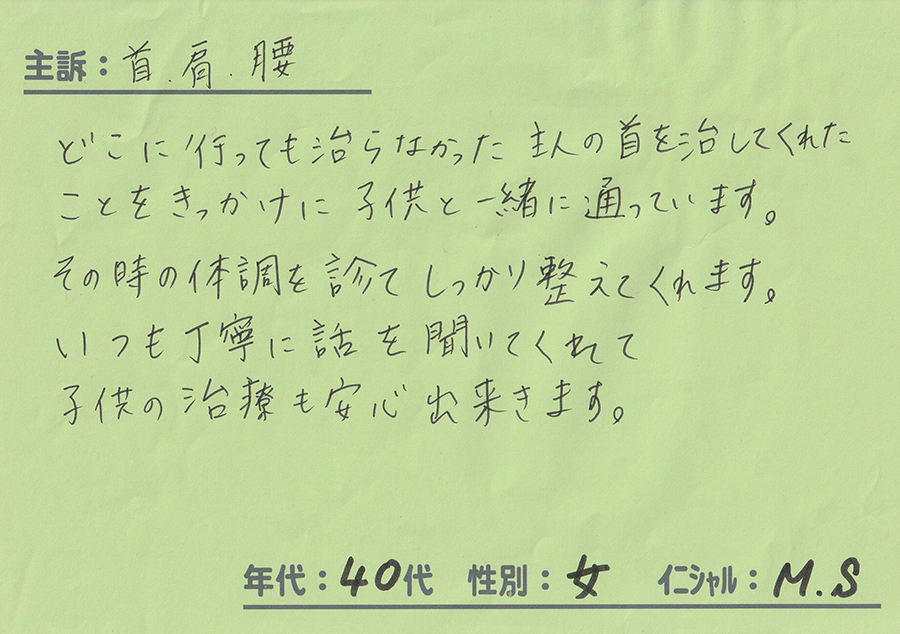 主訴：首.肩.腰
どこに行っても治らなかった 主人の首を治してくれた
ことをきっかけに 子供と一緒に通っています。
その時の体調を診て しっかり整えてくれます。
いつも丁寧に話を聞いてくれて
子供の治療も安心出来きます。
年代：40代 性別：女 イニシャル：M.S